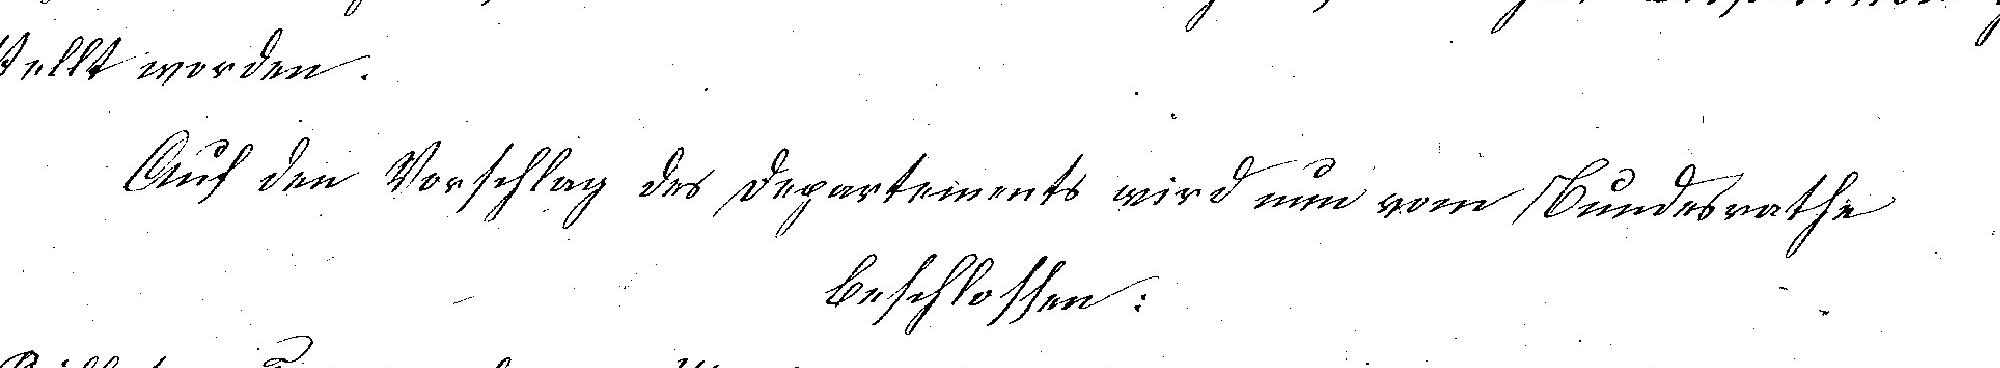 stellt worden.
Auf den Vorschlag des Departements wird nun vom Bundesrathe
beschlossen: